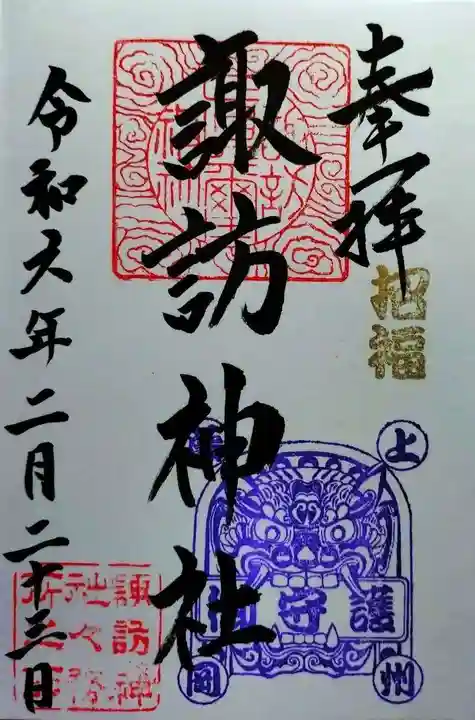 奉拝
招福
諏訪神社
上州
守護
令和六年二月二十三日
諏訪神
社々務